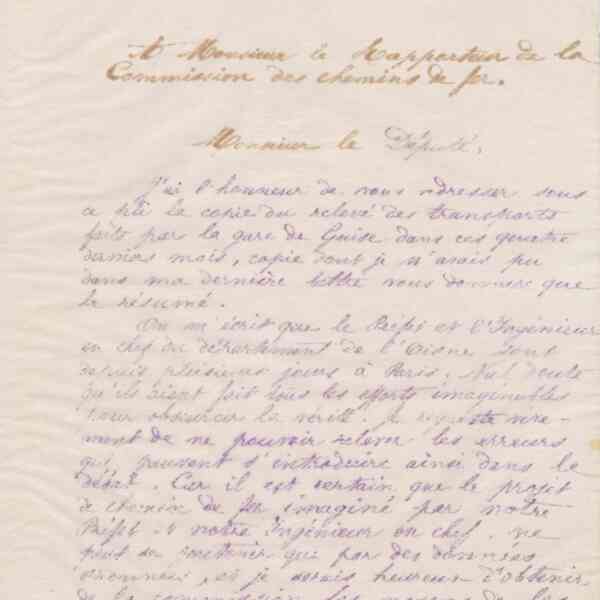 A Monsieur le Rapporteur de la
Commission des chemins de fer.
Monsieur le Député,
J'ai l'honneur de vous adresser sous
ce pli la copie du relevé des transports
faits par la gare de Guise dans ces quatre
derniers mois, copie dont je n'avais pu
dans ma dernière lettre vous donner que
le résumé.
On m'écrit que le Préfet et l'Ingénieur
en chef du département de l'Aisne sont
depuis plusieurs jours à Paris. Nul doute
qu'ils aient fait tous les efforts imaginables
pour obscurcir la vérité. Je regrette vive-
ment de ne pouvoir relever les erreurs
qui peuvent s'introduire ainsi dans le
débat. Car il est certain que le projet
de chemin de fer imaginé par notre
Préfet et notre Ingénieur en chef, ne
peut se soutenir que par des données
erronées, et je serais heureux d'obtenir
de la commission les moyens de les